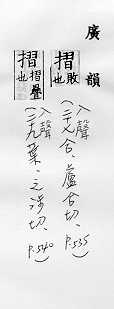 廣韻
摺 敗也
入聲
(二十七合、盧合切、P.535)
摺 摺疊也
入聲
(二十九葉、之涉切、P.540)